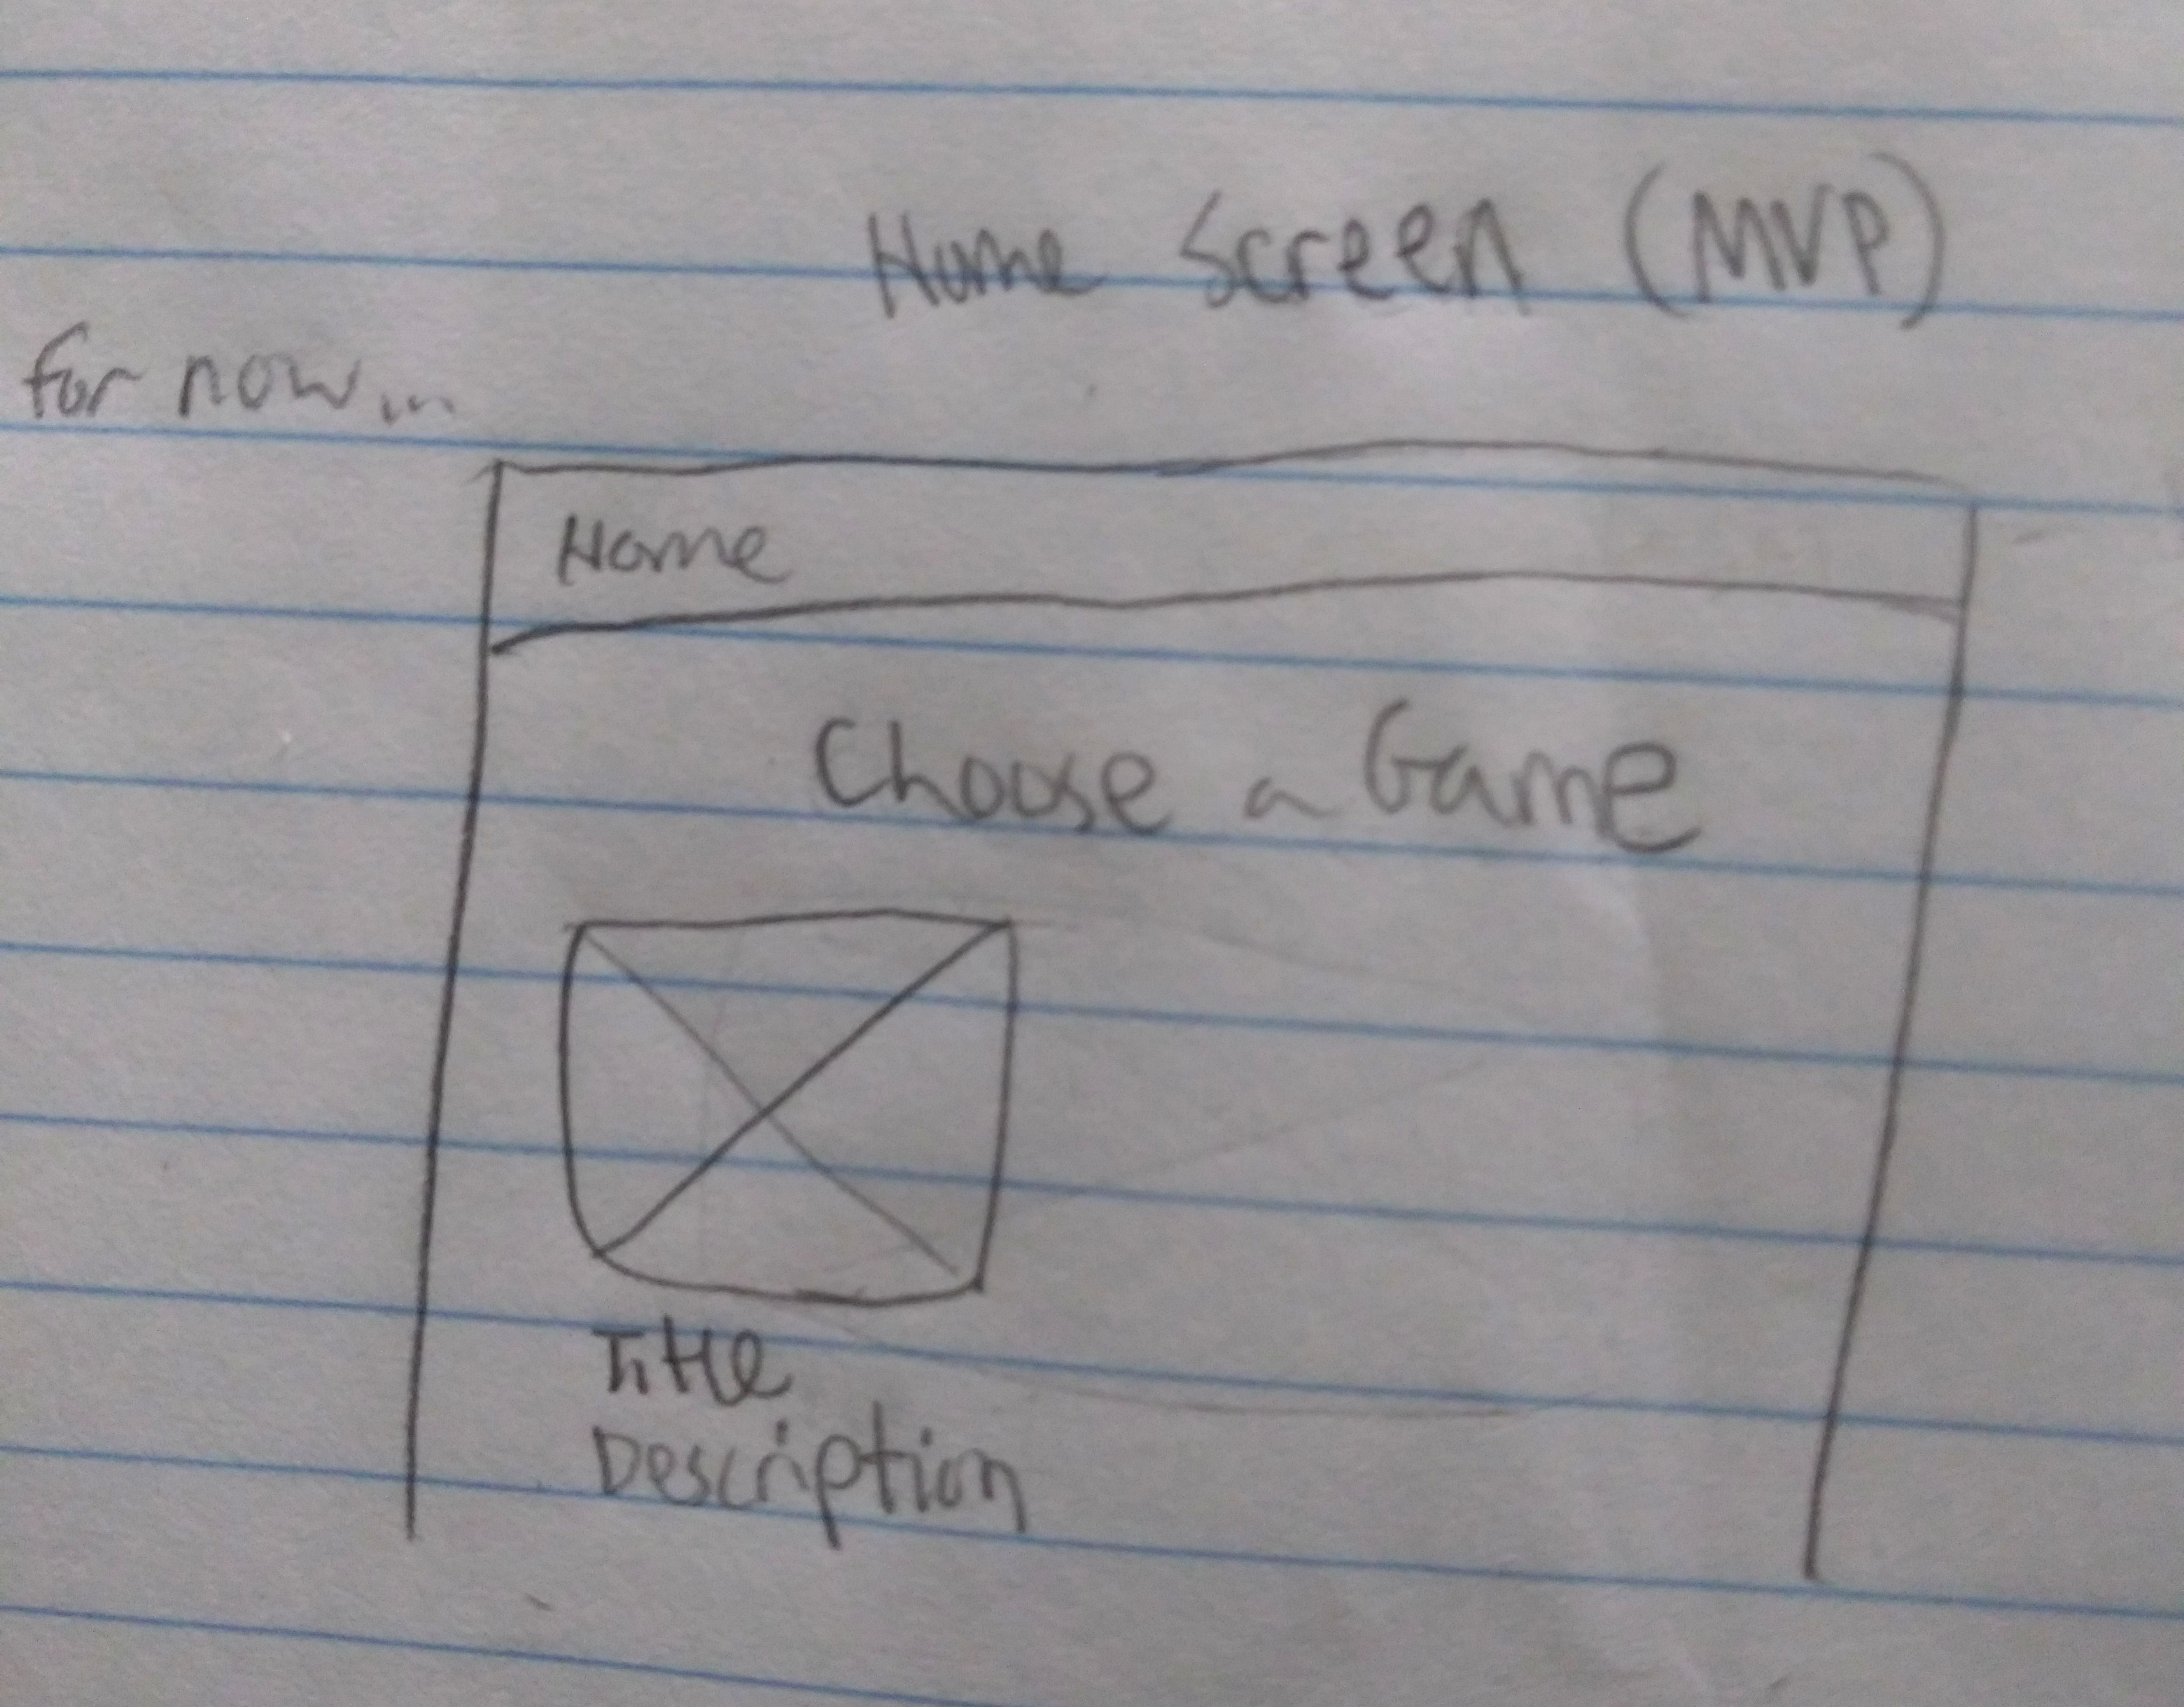 Home Screen (MVP)
for now...
Home
Choose a Game
Title
Description